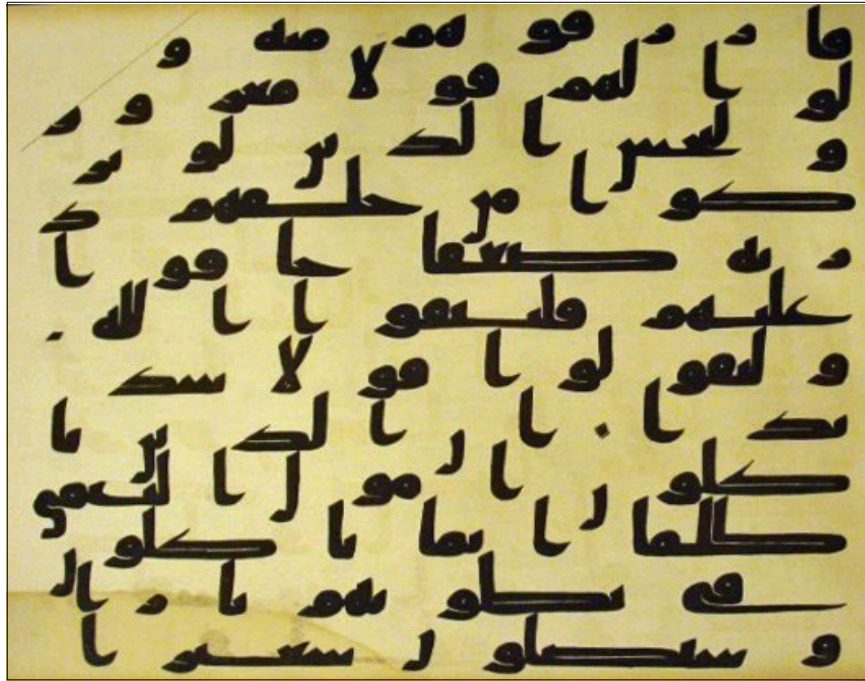 فارزقوهم منه و
قولوا لهم قولا معرو
و ليخش الذين لو تر
كوا من خلفهم ذ
رية ضعفا خافوا
عليهم فليتقوا الله
و ليقولوا قولا سد
يدا ان الذين يا
كلون امول اليتمى
ظلما انما ياكلو
في بطونهم نار
و سيصلون سعيرا